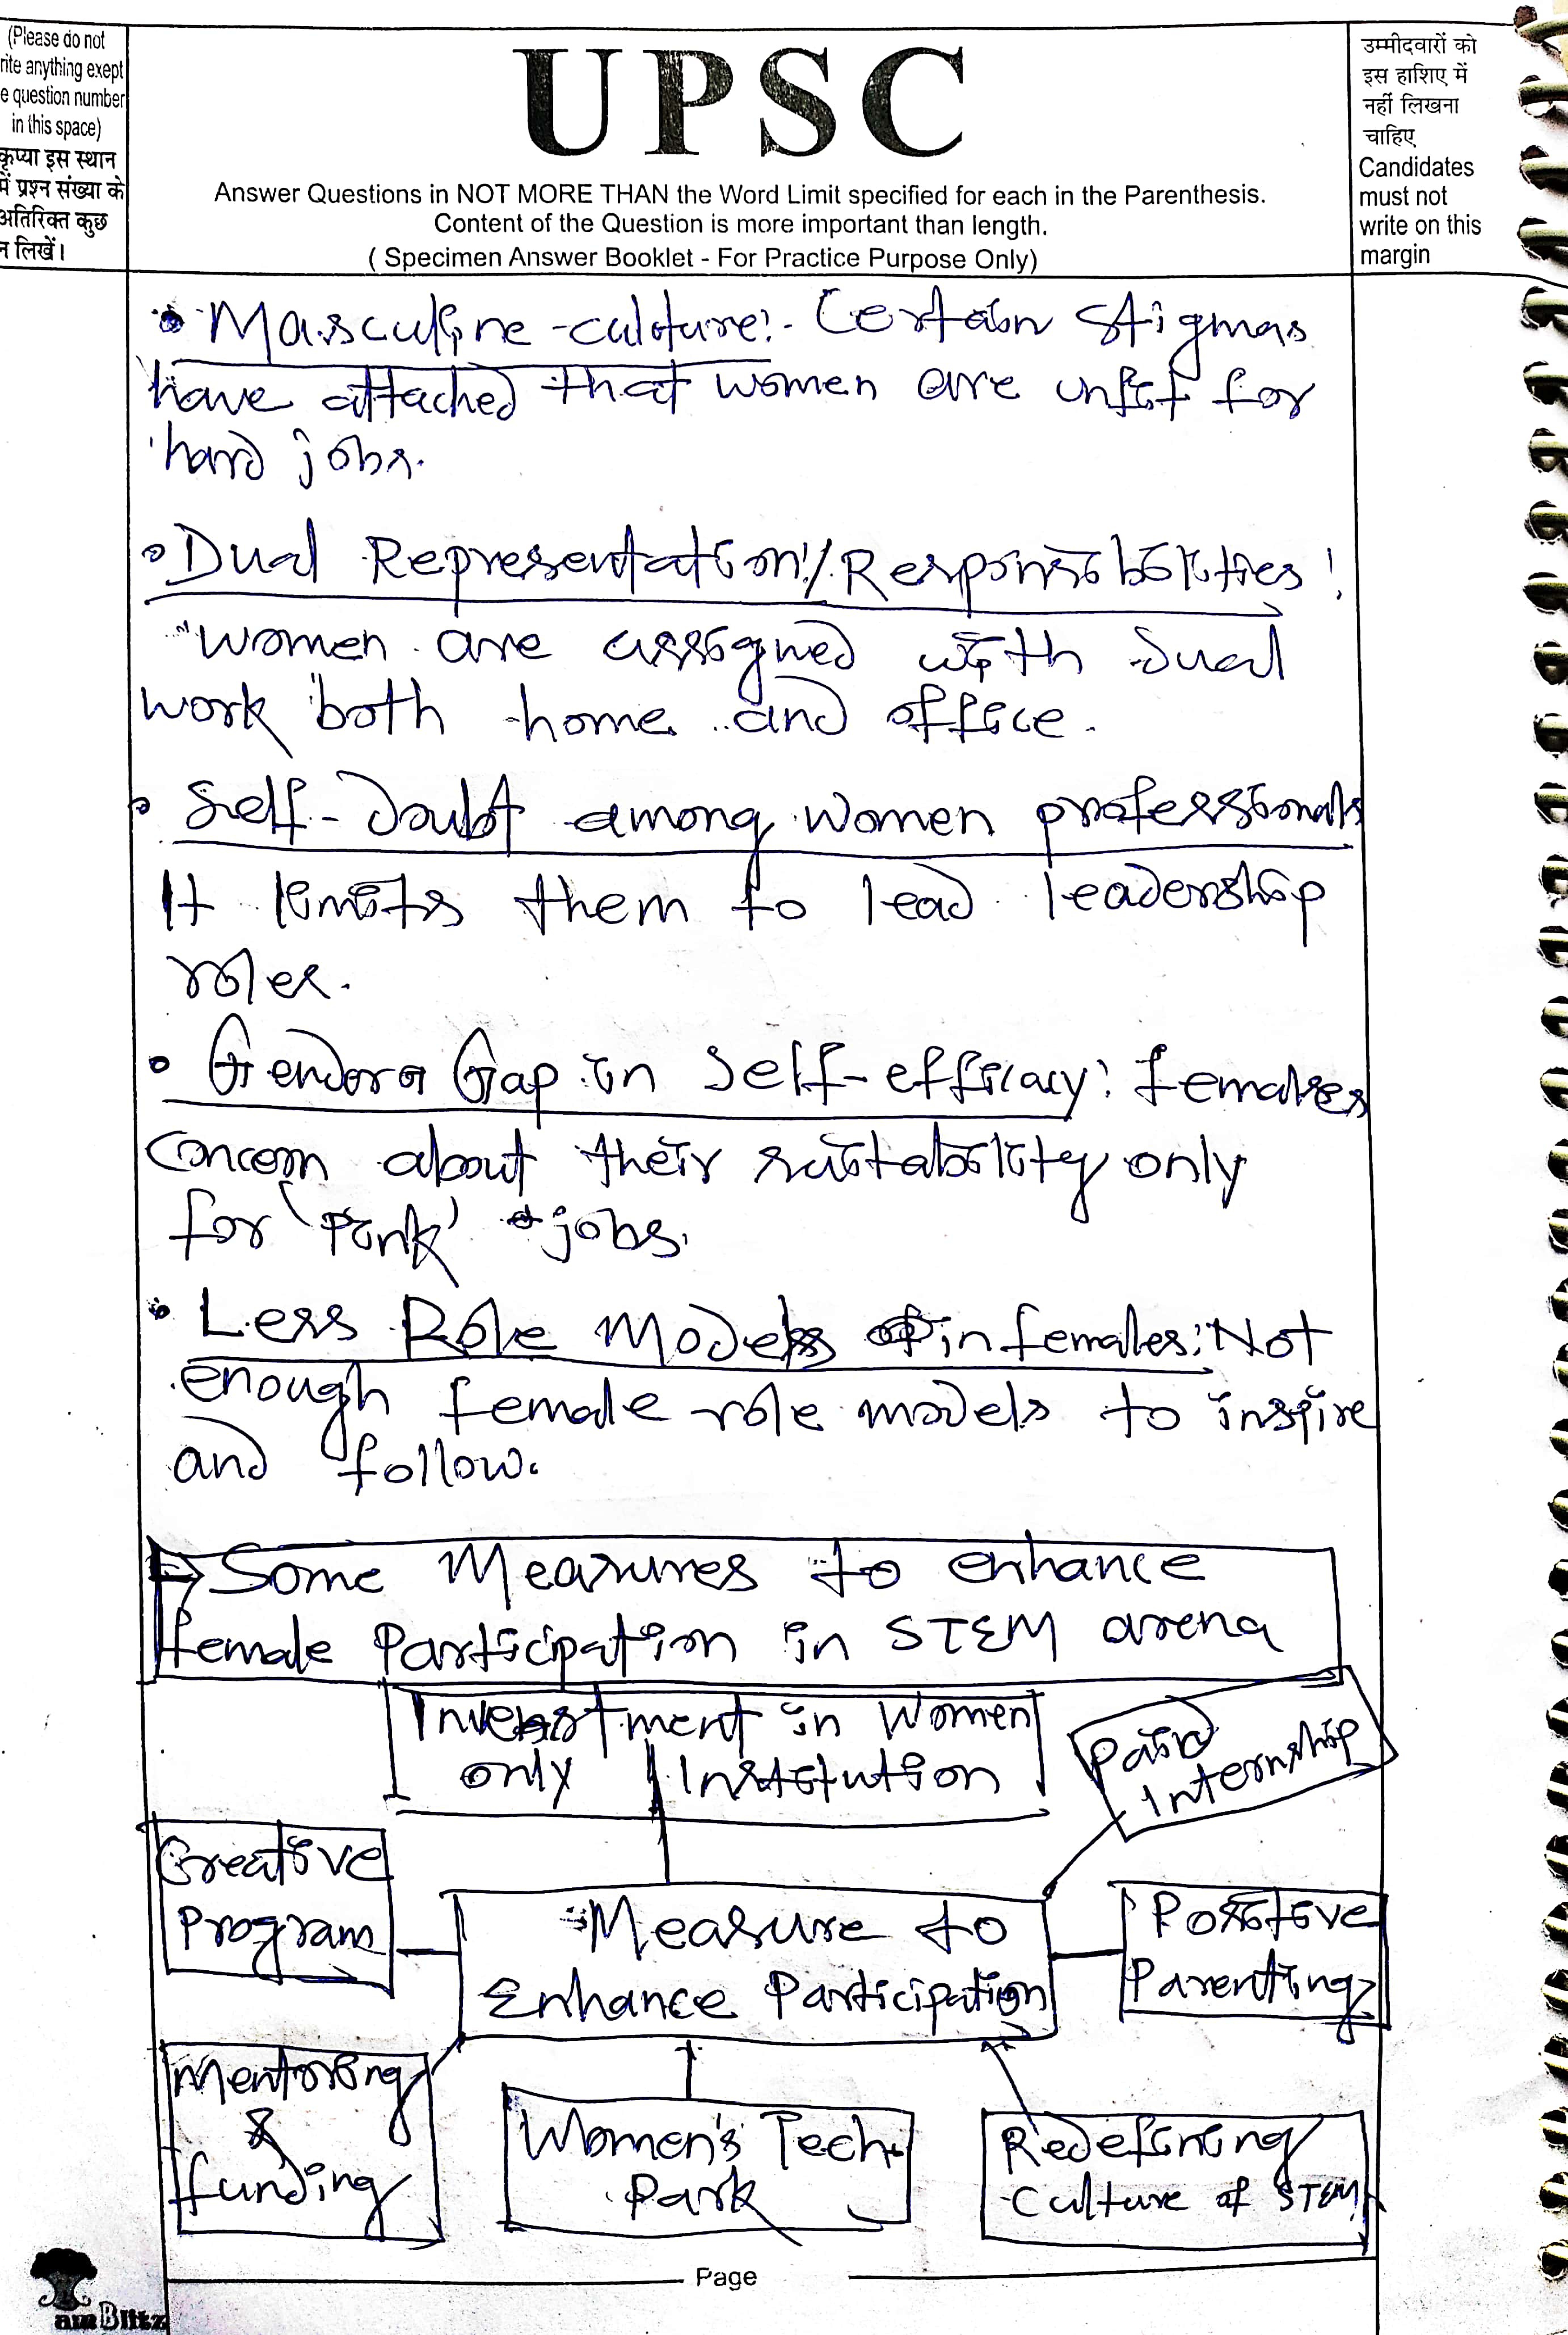 (Please do not
rite anything exept
e question number
in this space)
कृप्या इस स्थान
में प्रश्न संख्या के
अतिरिक्त कुछ
न लिखें।
UPSC
Answer Questions in NOT MORE THAN the Word Limit specified for each in the Parenthesis.
Content of the Question is more important than length.
( Specimen Answer Booklet - For Practice Purpose Only)
उम्मीदवारों को
इस हाशिए में
नहीं लिखना
चाहिए
Candidates
must not
write on this
margin
• Masculine-culture:- Certain stigmas
have attached that women are unfit for
hard jobs.
• Dual Representation/Responsibilities:
women are assigned with dual
work both home and office.
• Self-Doubt among women professionals
It limits them to lead leadership
roles.
• Gender Gap in self-efficacy: females
concern about their suitability only
for 'Pink' jobs.
• Less Role Models in females: Not
enough female role models to inspire
and follow.
→ Some Measures to enhance
female Participation in STEM arena
Investment in Women
only Institution
Paid
Internship
Creative
Program
Measure to
Enhance Participation
Positive
Parenting
Mentoring
&
funding
Women's Tech
Park
Redefining
Culture of STEM
Page
amBlitz